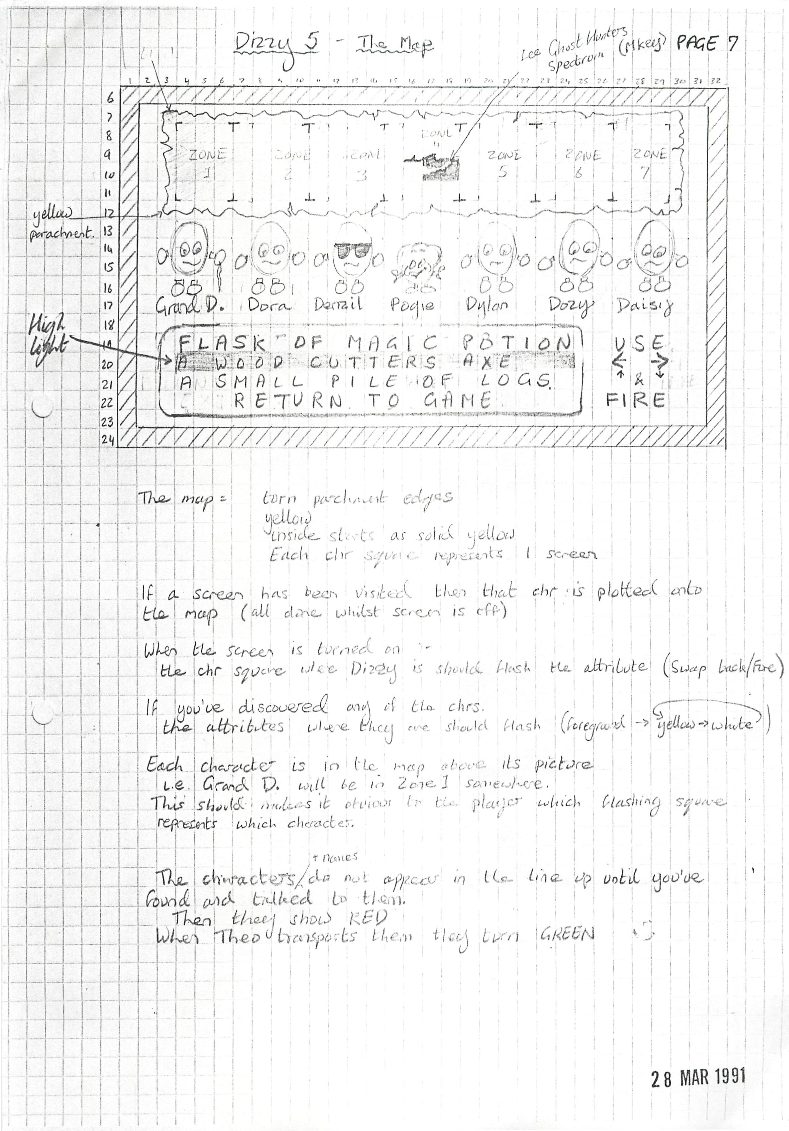 Dizzy 5 - The Map
see Ghost Hunters
Spectrum (Mkey)
PAGE 7
1 2 3 4 5 6 7 8 9 10 11 12 13 14 15 16 17 18 19 20 21 22 23 24 25 26 27 28 29 30 31 32
6
7
8
9
10
11
12
13
14
15
16
17
18
19
20
21
22
23
24
ZONE 1
ZONE 2
ZONE 3
ZONE 4
ZONE 5
ZONE 6
ZONE 7
yellow
parachment.
Grand D. Dora Denzil Pogie Dylan Dozy Daisy
High
light
FLASK OF MAGIC POTION
A WOOD CUTTERS AXE
A SMALL PILE OF LOGS
RETURN TO GAME
USE
← →
↑ & ↓
FIRE
The map = torn parchment edges
yellow
inside starts as solid yellow
Each chr square represents 1 screen
If a screen has been visited then that chr is plotted onto
the map (all done whilst screen is off)
When the screen is turned on :-
the chr square where Dizzy is should flash the attribute (Swap back/Fore)
If you've discovered any of the chrs.
the attributes where they are should flash (foreground → yellow → white)
Each character is in the map above its picture
i.e. Grand D. will be in Zone 1 somewhere.
This should makes it obvious to the player which flashing square
represents which character.
+ names
The characters/do not appear in the line up until you've
found and talked to them.
Then they show RED
When Theo transports them they turn GREEN
28 MAR 1991